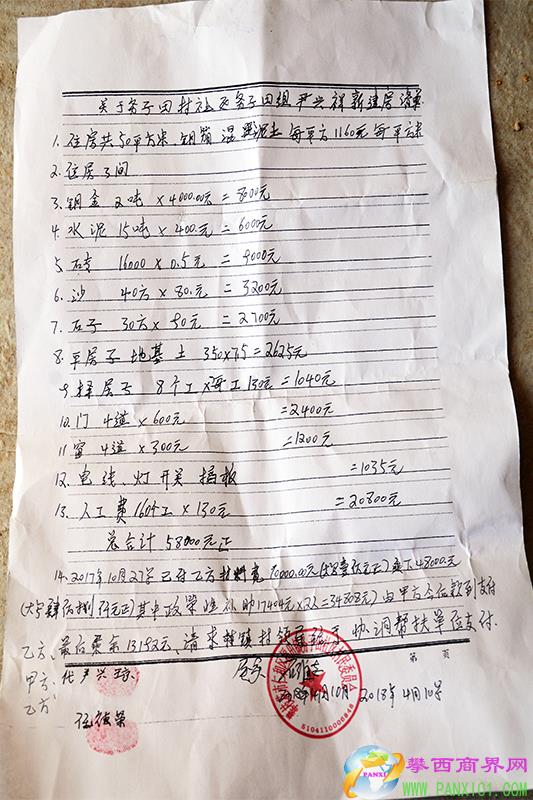 关于务子田村社区务子田组尹兴祥新建房清单
1. 住房共50平方米、钢筋混凝泥土 每平方1160元每平方米
2. 住房3间
3. 钢金 2吨×4000.00元=8000元
4. 水泥 15吨×400.元=6000元
5. 石专 16000×0.5元=9000元
6. 沙 40方×80.元=3200元
7. 石子 30方×90元=2700元
8. 平房子地基土 350×7.5=2625元
9. 择房子 8个工×每工130元=1040元
10. 门 4道×600元=2400元
11 窗 4道×300元=1200元
12. 电线、灯开关 插板=1035元
13. 人工费160个工×130元=20800元
总合计 58000元正
14. 2017年10月27号已付乙方材料费10000.00元(大写壹万元正)剩下48000.元
(大写肆万捌仟元正)其中政策性补助17404元×2人=34808元)由甲方今后款到支付
乙方、最后剩余13192元、请求镇村领导给予协调帮扶单位支付.
第 页
甲方: 代尹兴
乙方
2018年4月10号
5104110000848
攀西商界网
PANXI
WWW.PANXI01.COM